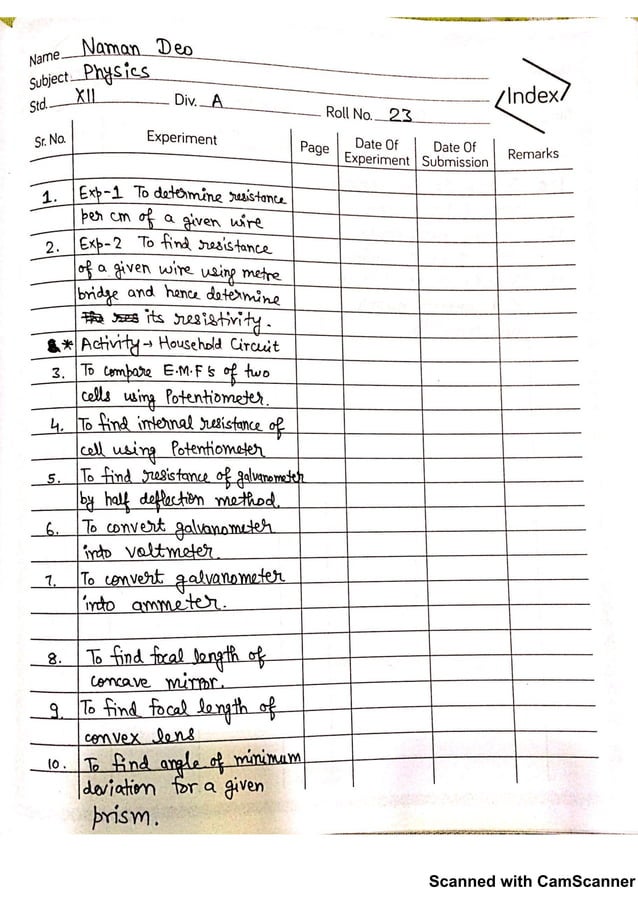 Name Naman Deo
Subject Physics
Std. XII Div. A Roll No. 23
Index
Sr. No. Experiment Page Date Of Experiment Date Of Submission Remarks
1. Exp-1 To determine resistance
per cm of a given wire
2. Exp-2 To find resistance
of a given wire using metre
bridge and hence determine
its resistivity.
* Activity → Household Circuit
3. To compare E.M.F's of two
cells using Potentiometer.
4. To find internal resistance of
cell using Potentiometer
5. To find resistance of galvanometer
by half deflection method.
6. To convert galvanometer
into voltmeter
7. To convert galvanometer
into ammeter.
8. To find focal length of
concave mirror.
9. To find focal length of
convex lens
10. To find angle of minimum
deviation for a given
prism.
Scanned with CamScanner